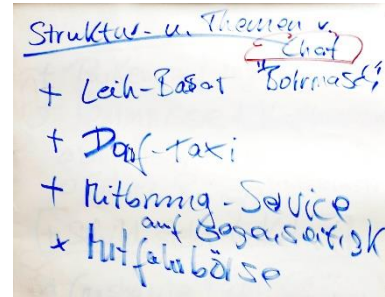 Struktur- u. Themen v.
- Chat
+ Leih-Basar "Bohrmasch."
+ Dorf-Taxi
+ Mitbring-Service
auf Gegenseitigk
* Mitfahrbörse